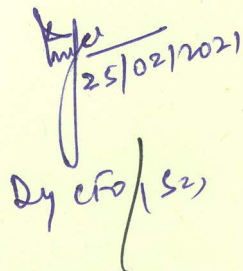 25/02/2021
Dy CFO/(S2)